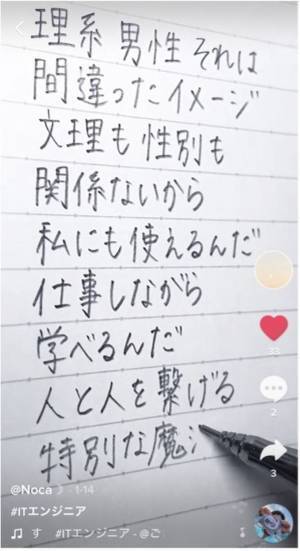 理系 男性 それは
間違ったイメージ
文理も 性別も
関係ないから
私にも使えるんだ
仕事しながら
学べるんだ
人と人を繋げる
特別な魔
33
2
3
@Noca 1-14
#ITエンジニア
す #ITエンジニア - @ご